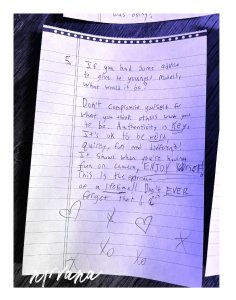 was being?
5. If you had some advice
to give to younger models,
what would it be?
Don't compromise yourself for
what you think others want you
to be. Authenticity is KEY.
It's ok to be
quirky, fun and different!
It shows when you're having
fun on camera, ENJOY
This is the
of a lifetime! Don't EVER
forget that!
X
X
XO
XO
Nirvana